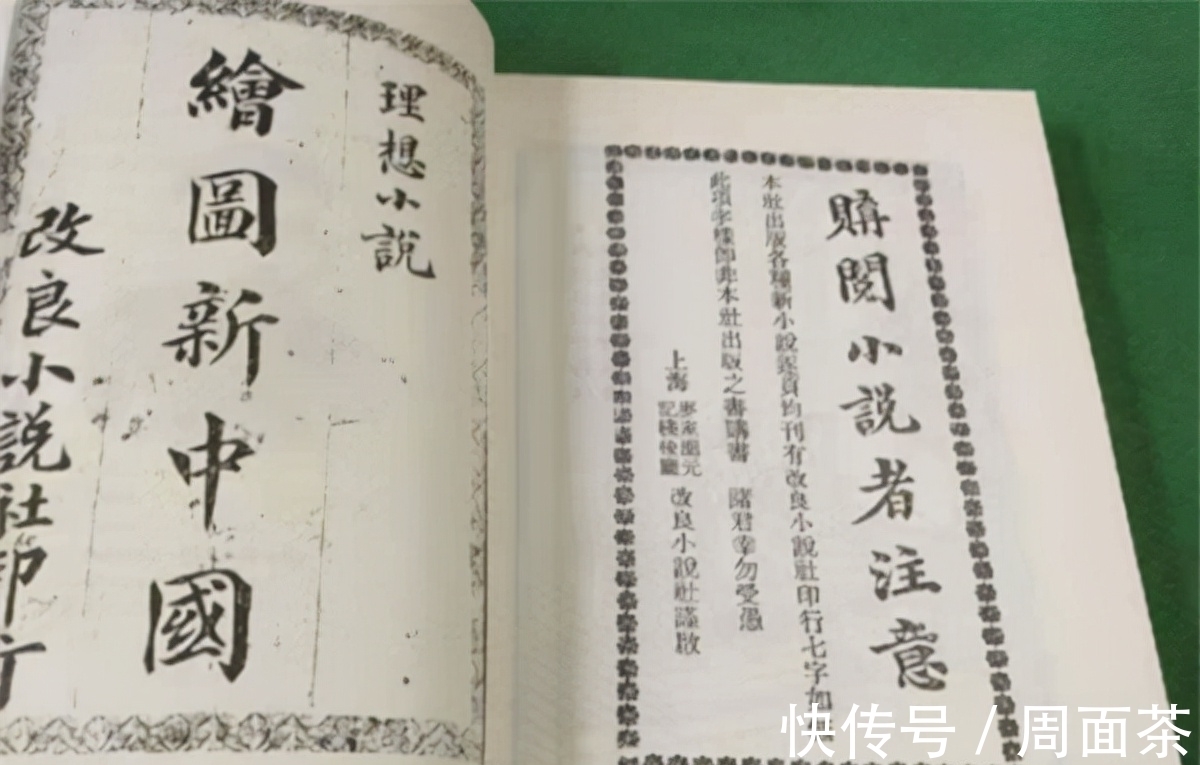 理想小說
繪圖新中國
改良小說社印行
購閱小說者注意
本社出版各種新小說逐頁均刊有改良小說社印行七字如無
此項字樣即非本社出版之書購書 諸君幸勿受愚
上海
記棧後廳
改良小說社謹啟
快传号 / 周面茶